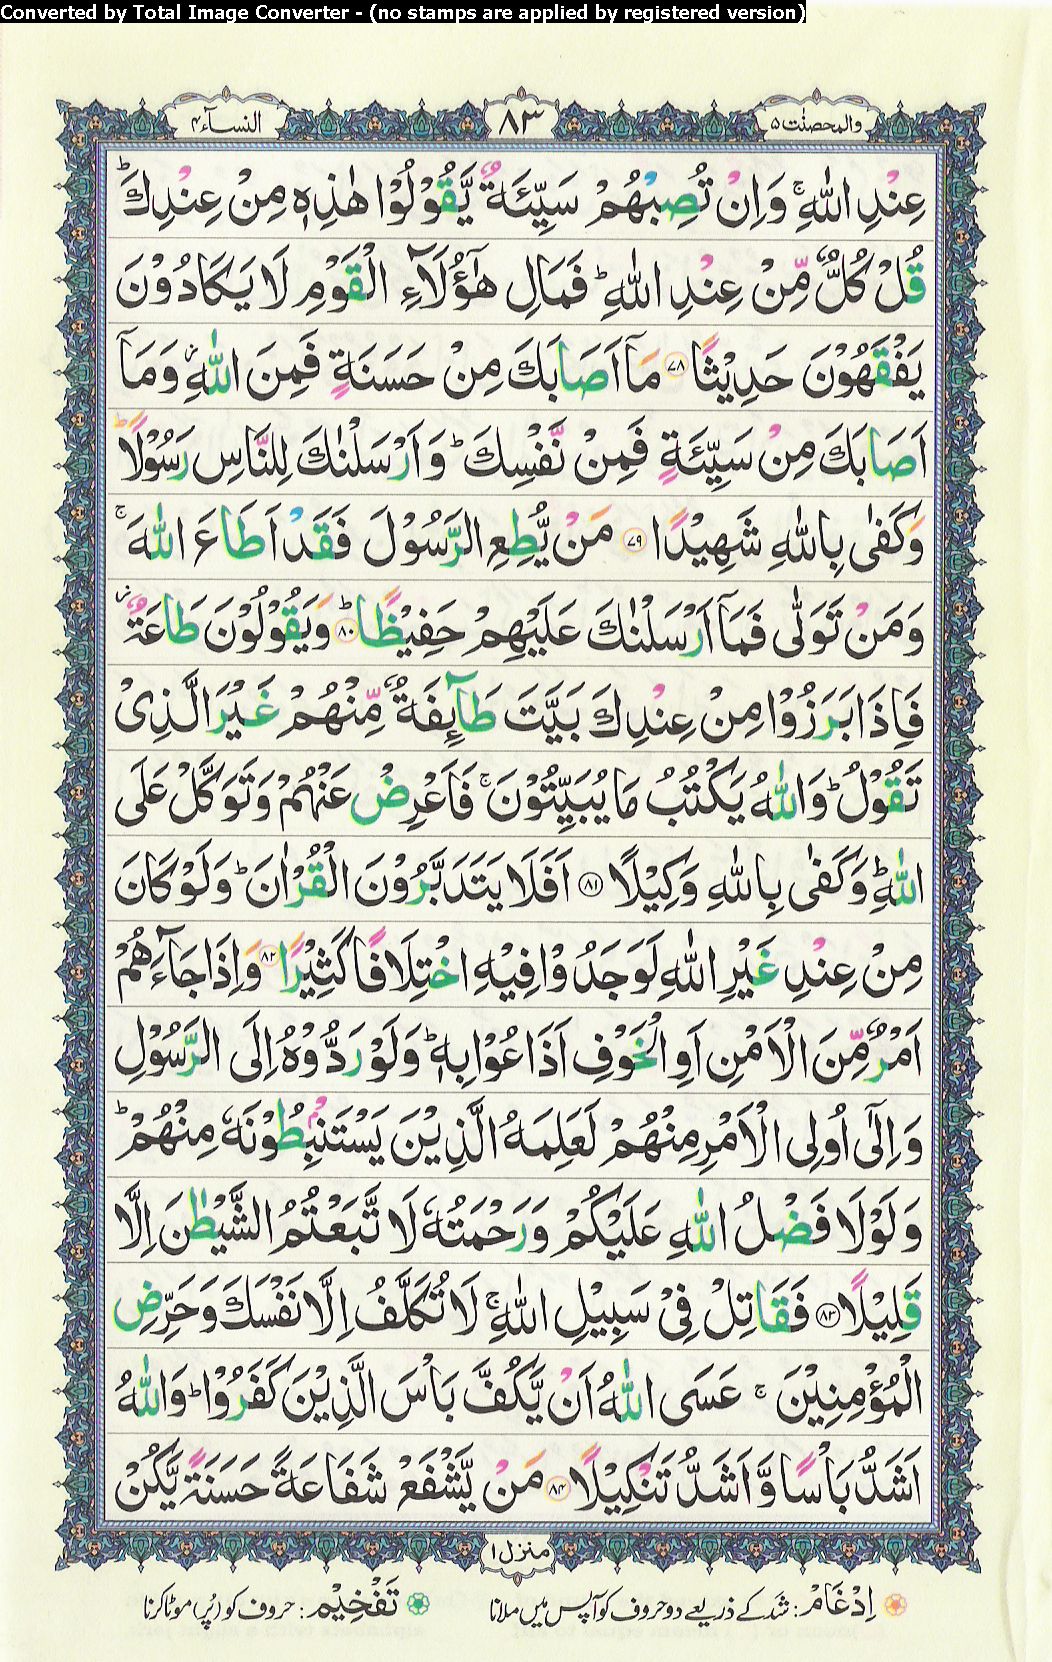 Converted by Total Image Converter - (no stamps are applied by registered version)
والمحصنٰت ۵
۸۳
النسآء ۴
عِنْدِ اللّٰهِ ۚ وَاِنْ تُصِبْهُمْ سَيِّئَةٌ يَّقُوْلُوْا هٰذِهٖ مِنْ عِنْدِكَ ؕ
قُلْ كُلٌّ مِّنْ عِنْدِ اللّٰهِ ؕ فَمَالِ هٰۤؤُلَآءِ الْقَوْمِ لَا يَكَادُوْنَ
يَفْقَهُوْنَ حَدِيْثًا ۷۸ مَاۤ اَصَابَكَ مِنْ حَسَنَةٍ فَمِنَ اللّٰهِ ؗ وَمَاۤ
اَصَابَكَ مِنْ سَيِّئَةٍ فَمِنْ نَّفْسِكَ ؕ وَاَرْسَلْنٰكَ لِلنَّاسِ رَسُوْلًا ؕ
وَكَفٰى بِاللّٰهِ شَهِيْدًا ۷۹ مَنْ يُّطِعِ الرَّسُوْلَ فَقَدْ اَطَاعَ اللّٰهَ ۚ
وَمَنْ تَوَلّٰى فَمَاۤ اَرْسَلْنٰكَ عَلَيْهِمْ حَفِيْظًا ؕ ۸۰ وَيَقُوْلُوْنَ طَاعَةٌ ؗ
فَاِذَا بَرَزُوْا مِنْ عِنْدِكَ بَيَّتَ طَآئِفَةٌ مِّنْهُمْ غَيْرَ الَّذِىْ
تَقُوْلُ ؕ وَاللّٰهُ يَكْتُبُ مَا يُبَيِّتُوْنَ ۚ فَاَعْرِضْ عَنْهُمْ وَتَوَكَّلْ عَلَى
اللّٰهِ ؕ وَكَفٰى بِاللّٰهِ وَكِيْلًا ۸۱ اَفَلَا يَتَدَبَّرُوْنَ الْقُرْاٰنَ ؕ وَلَوْ كَانَ
مِنْ عِنْدِ غَيْرِ اللّٰهِ لَوَجَدُوْا فِيْهِ اخْتِلَافًا كَثِيْرًا ۸۲ وَاِذَا جَآءَهُمْ
اَمْرٌ مِّنَ الْاَمْنِ اَوِ الْخَوْفِ اَذَاعُوْا بِهٖ ؕ وَلَوْ رَدُّوْهُ اِلَى الرَّسُوْلِ
وَاِلٰٓى اُولِى الْاَمْرِ مِنْهُمْ لَعَلِمَهُ الَّذِيْنَ يَسْتَنْۢبِطُوْنَهٗ مِنْهُمْ ؕ
وَلَوْلَا فَضْلُ اللّٰهِ عَلَيْكُمْ وَرَحْمَتُهٗ لَا تَّبَعْتُمُ الشَّيْطٰنَ اِلَّا
قَلِيْلًا ۸۳ فَقَاتِلْ فِىْ سَبِيْلِ اللّٰهِ ۚ لَا تُكَلَّفُ اِلَّا نَفْسَكَ وَحَرِّضِ
الْمُؤْمِنِيْنَ ۚ عَسَى اللّٰهُ اَنْ يَّكُفَّ بَاْسَ الَّذِيْنَ كَفَرُوْا ؕ وَاللّٰهُ
اَشَدُّ بَاْسًا وَّاَشَدُّ تَنْكِيْلًا ۸۴ مَنْ يَّشْفَعْ شَفَاعَةً حَسَنَةً يَّكُنْ
منزل ۱
اِدْغَامْ: شد کے ذریعے دو حروف کو آپس میں ملانا
تَفْخِيْمْ: حروف کو (پُر) موٹا کرنا